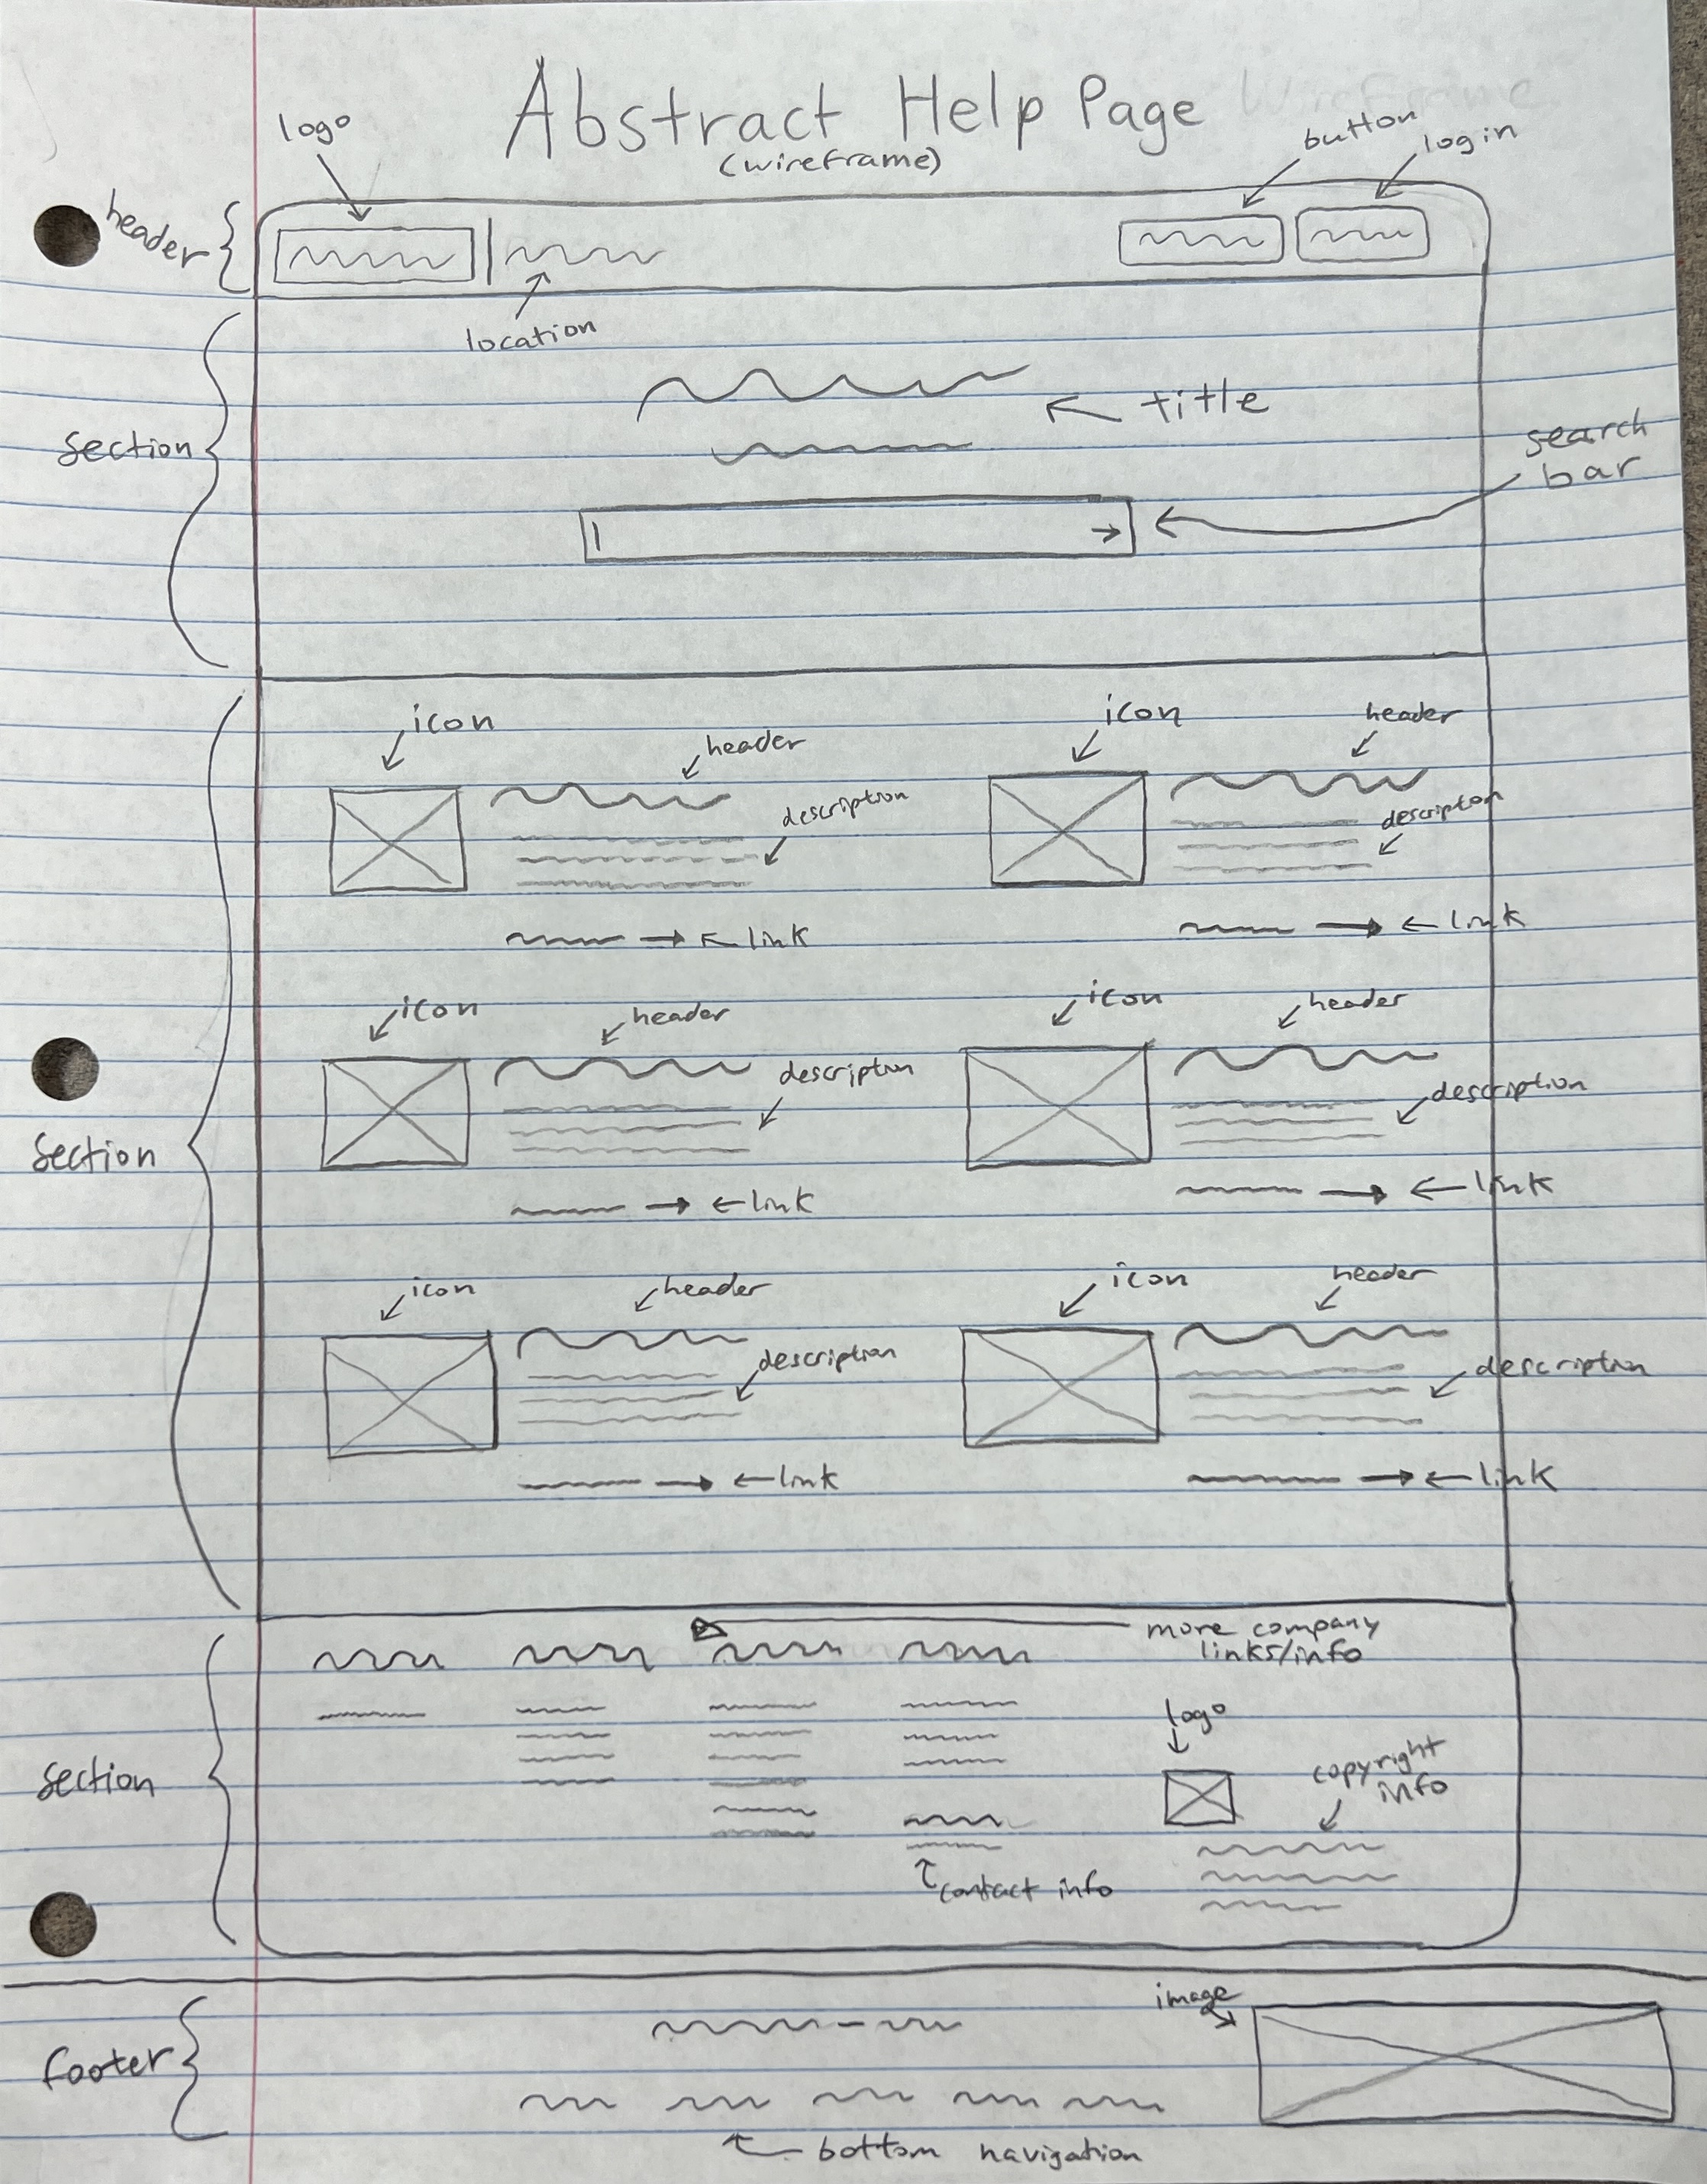 Abstract Help Page Wireframe
(wireframe)
logo
button
login
header
location
section
title
search
bar
icon
header
description
link
icon
header
description
link
section
icon
header
description
link
icon
header
description
link
icon
header
description
link
icon
header
description
link
more company
links/info
section
logo
copyright
info
contact info
footer
image
bottom navigation